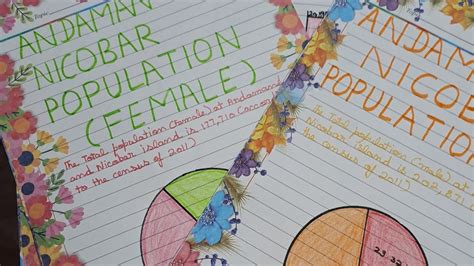 Topic:
ANDAMAN
NICOBAR
POPULATION
(FEMALE)
The Total population (Female) at Andaman
and Nicobar island is 177,710
to the census of 2011)
ANDAMA
NICO
POPULATION
The Total population (male) at
Nicobar island is 202,871
census of 2011)